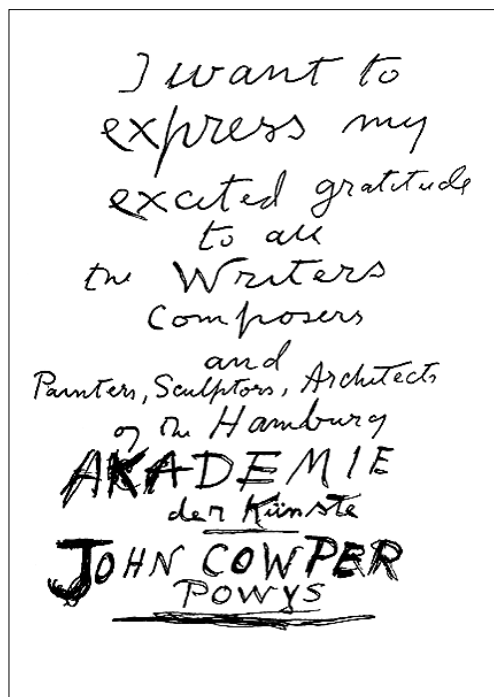 I want to
express my
excited gratitude
to all
the Writers
Composers
and
Painters, Sculptors, Architects
of the Hamburg
AKADEMIE
der Künste
JOHN COWPER
POWYS